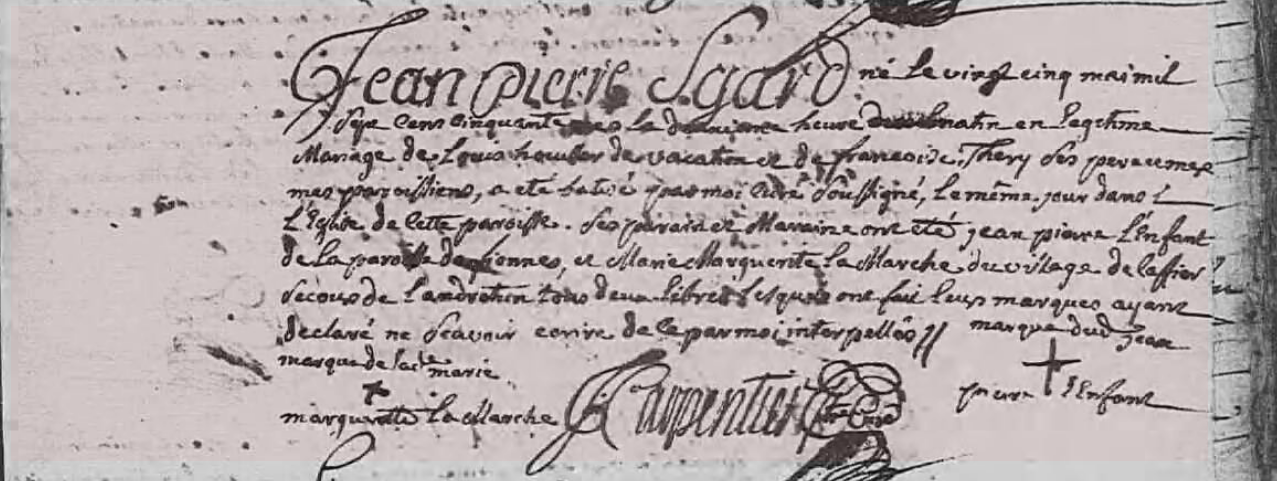 Jean pierre Sgard né le vingt cinq mai mil
Sept Cens Cinquante la heure matin en legitime
Mariage de Louis de vacation et de francoise Thery Ses pere et mere
mes paroissiens, a eté batisé par moi Curé Soussigné, le même jour dans
L'Eglise de Cette paroisse. Ses parain et Maraine ont été jean pierre L'Enfant
de la paroisse de, et Marie Marguerite la Marche du vilage de
Secours de Landrethun tous deux libres Lesquels ont fait leurs marques ayant
declaré ne Scavoir ecrire de ce par moi interpellés //
marque dud jean
pierre + L'Enfant
marque de lad.te marie
+
marguerite la Marche
Carpentier Curé